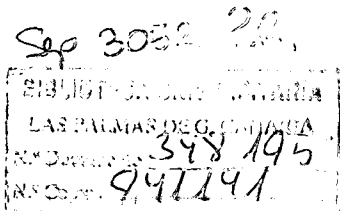 BIBLIOTECA UNIVERSITARIA
LAS PALMAS DE G. CANARIA
N.º Documento 348195
N.º Copia 941141